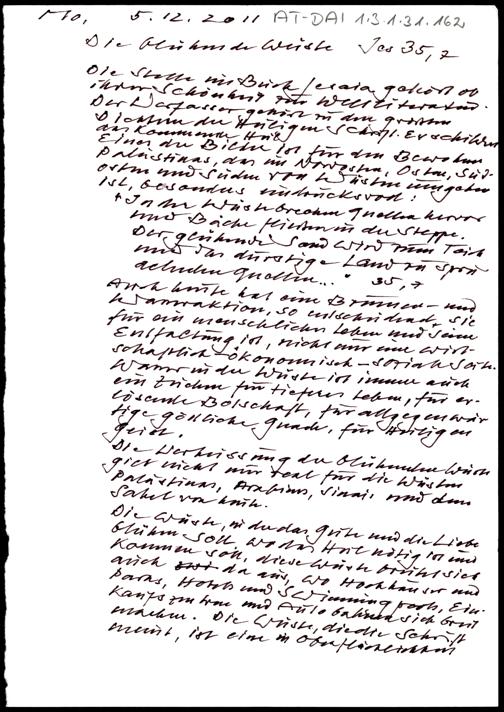 Mo, 5.12.2011 AT-DAI 1.3.1.31.162
Die blühende Wüste Jes 35,7
Die Stelle im Buch Jesaia gehört ob
ihrer Schönheit zur Weltliteratur.
Der Verfasser gehört zu den großen
Dichtern der Heiligen Schrift. Er schildert
das kommende Heil.
Eines der Bilder ist für den Bewohner
Palästinas, das im Nordosten, Osten, Süd-
osten und Süden von Wüsten umgeben
ist, besonders eindrucksvoll:
"In der Wüste brechen Quellen hervor
und Bäche fließen in der Steppe.
Der glühende Sand wird zum Teich
und das durstige Land zu spru
delnden Quellen..." 35,7
Auch heute hat eine Brunnen- und
Wasseraktion, so entscheidend sie
für ein menschliches Leben und seine
Entfaltung ist, nicht nur eine wirt-
schaftlich-ökonomisch-soziale Seite.
Wasser in der Wüste ist immer auch
ein Zeichen für tieferes Leben, für er-
lösende Botschaft, für allgegenwär
tige göttliche Gnade, für Heiligen
Geist.
Die Verheissung der blühenden Wüste
gilt nicht nur real für die Wüsten
Palästinas, Arabiens, Sinais und dem
Sahel von heute.
Die Wüste, in der das Gute und die Liebe
blühen soll, wo das Heil nötig ist und
kommen soll, diese Wüste breitet sich
auch da aus, wo Hochhäuser und
Parks, Hotels und Swimmingpools, Ein-
kaufszentren und Autobahnen sich breit
machen. Die Wüste, die die Schrift
meint, ist eine in Oberflächlichkeit